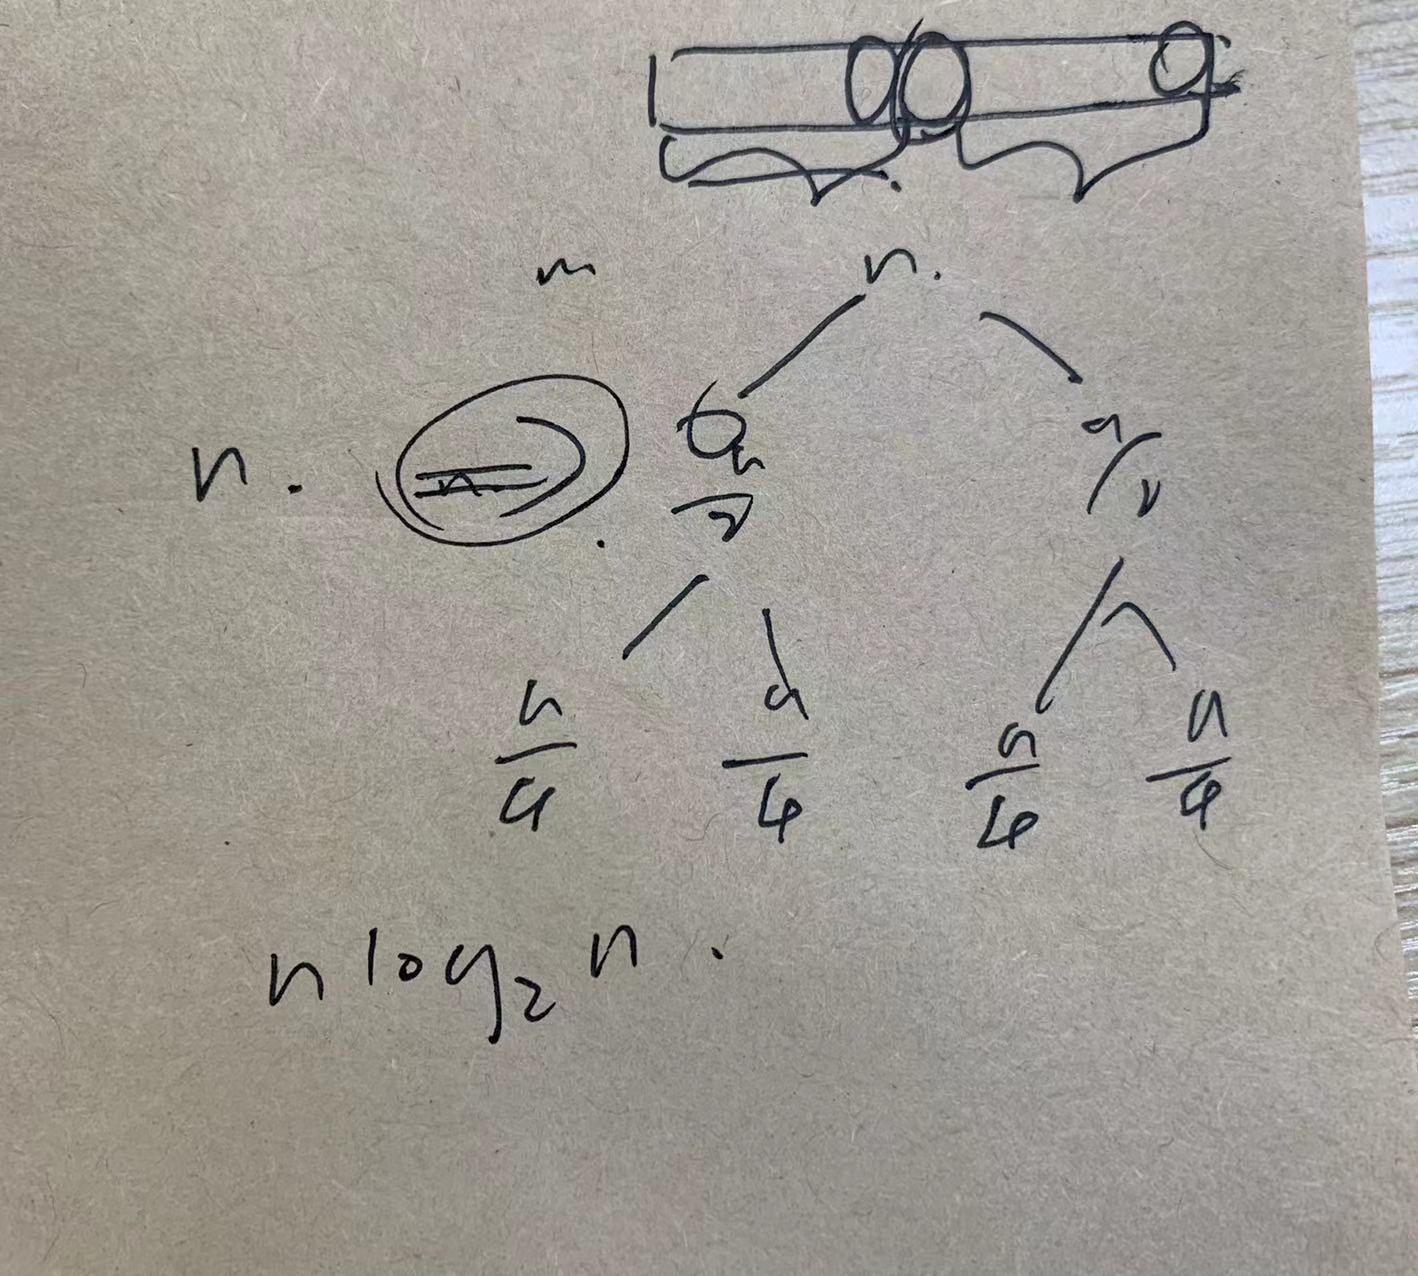 m n.
n. n
n/2 n/2
n/4 n/4 n/4 n/4
n log₂ n.